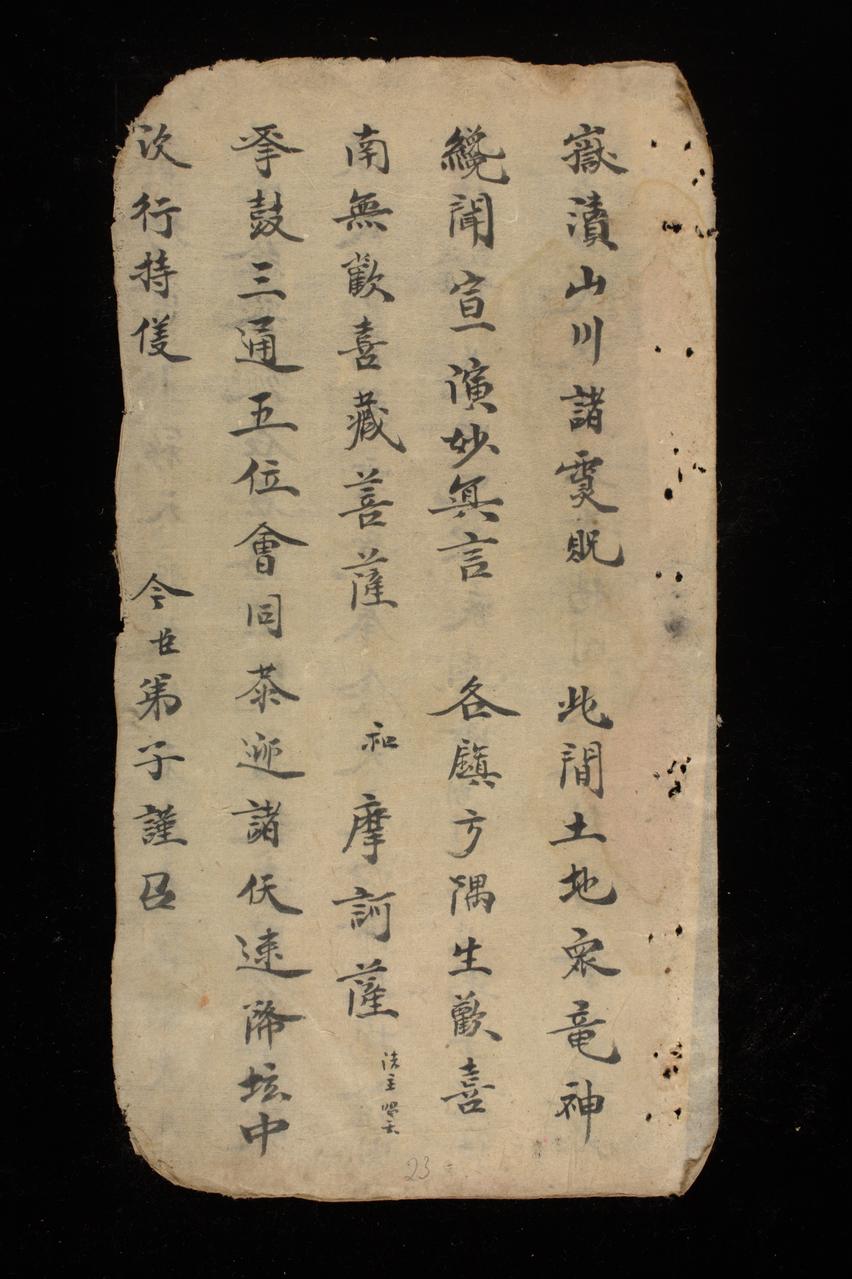 嶽瀆山川諸靈貺 此間土地衆竜神
纔聞宣演妙真言 各鎮方隅生歡喜
南無歡喜藏菩薩 和 摩訶薩 法主唱云
拳鼓三通五位會同恭迎諸天速降坛中
次行持 今臣弟子謹召
23